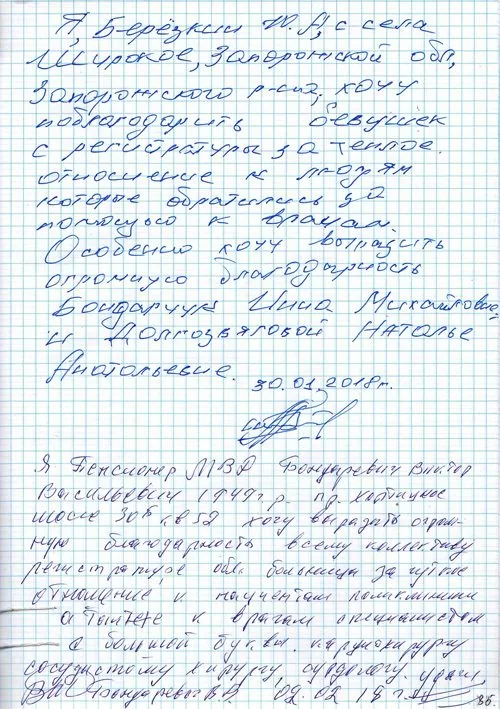 Я, Берёзкин Ю. А, с села
Широкое, Запорожской обл,
Запорожского р-на, хочу
поблагодарить девушек
с регистратуры за теплое
отношение к людям
которые обратились за
помощью к врачам.
Особенно хочу выразить
огромную благодарность
Бондарчук Нина Михайловне,
и Долгозвяговой Наталье
Анатольевне.
30.01.2018г.
Я Пенсионер МВД Бондаревич Виктор
Васильевич 1949г р. пр.
шоссе 30Б кв 52 хочу выразить огром-
ную благодарность всему коллективу
регистратуре обл. больницы за чуткое
отношение к пациентам поликлиники
а также к врачам специалистам
с большой буквы.
сосудистому хирургу, сурдологу. удачи,
Бондаревич В.В. 09. 02 18 г.
36